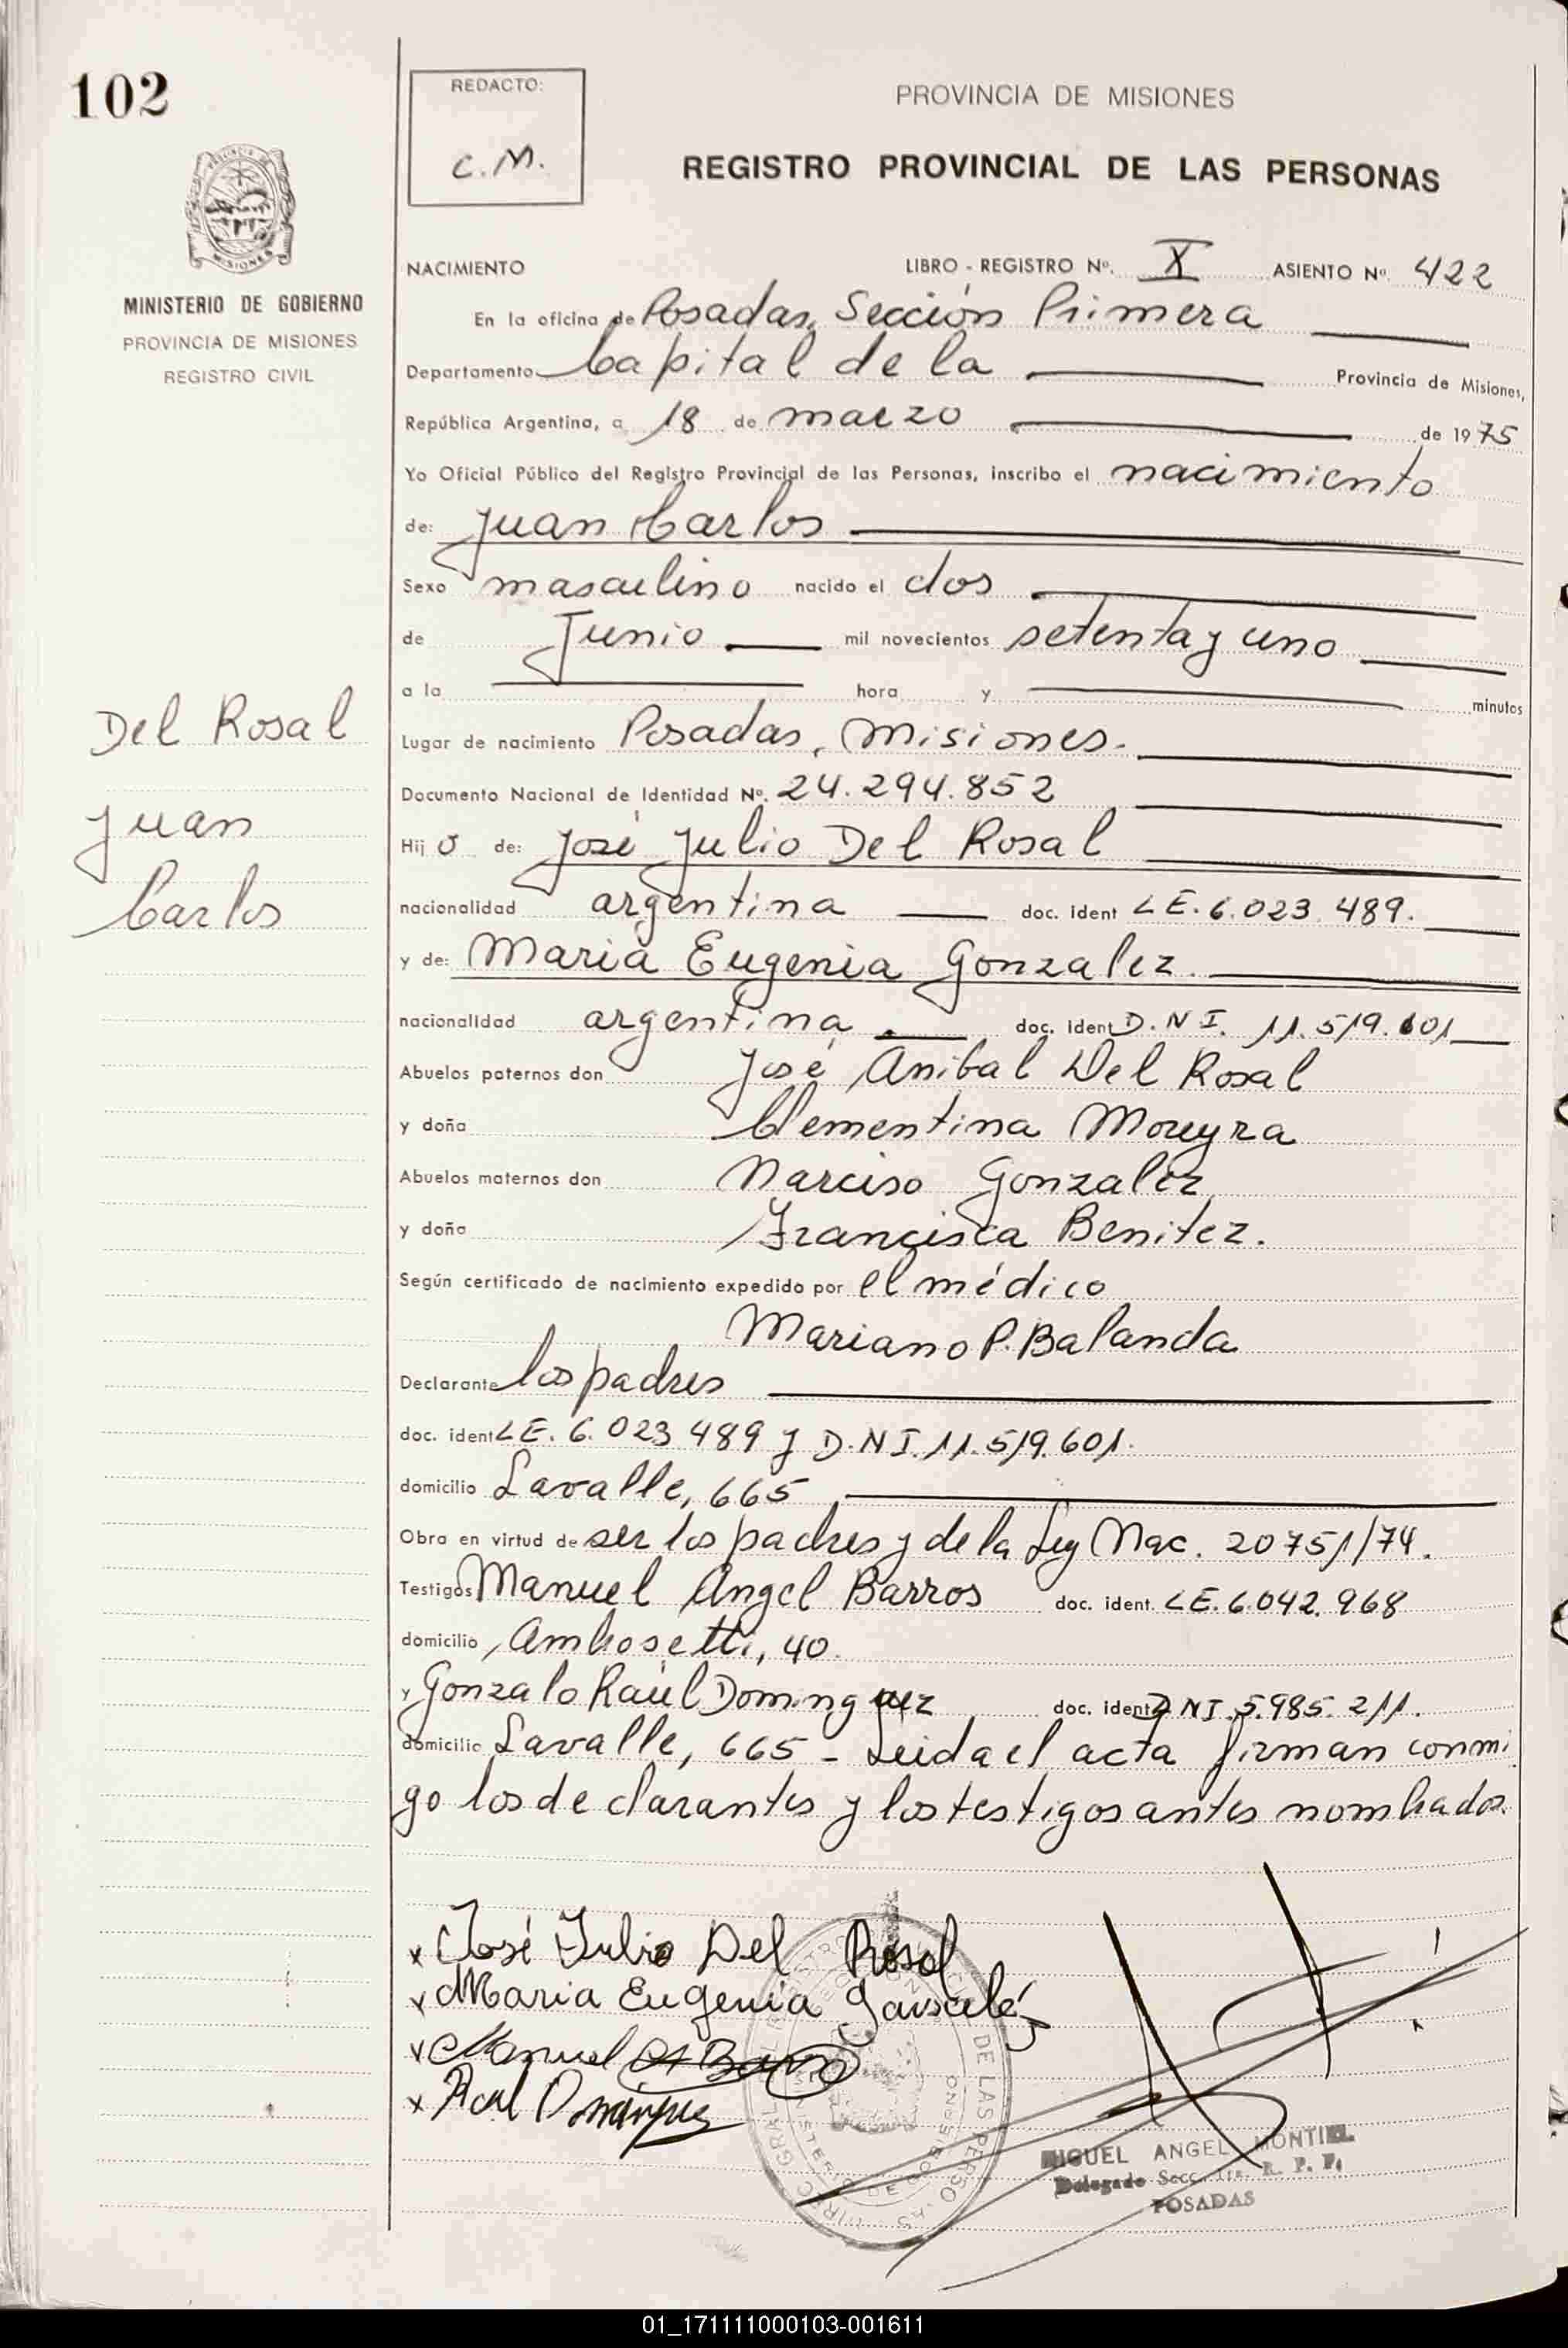 102
REDACTO:
C.M.
PROVINCIA DE MISIONES
REGISTRO PROVINCIAL DE LAS PERSONAS
MINISTERIO DE GOBIERNO
PROVINCIA DE MISIONES
REGISTRO CIVIL
NACIMIENTO LIBRO - REGISTRO Nº. X ASIENTO Nº. 422
En la oficina de Posadas, Sección Primera
Departamento Capital de la Provincia de Misiones,
República Argentina, a 18 de marzo de 1975
Yo Oficial Público del Registro Provincial de las Personas, inscribo el nacimiento
de: Juan Carlos
Sexo masculino nacido el dos
de Junio mil novecientos setenta y uno
a la hora y minutos
Del Rosal
Juan
Carlos
Lugar de nacimiento Posadas, Misiones.
Documento Nacional de Identidad Nº. 24.294.852
Hijo de: José Julio Del Rosal
nacionalidad argentina doc. ident LE. 6.023.489.
y de: Maria Eugenia Gonzalez.
nacionalidad argentina. doc. ident D.N I. 11.519.601
Abuelos paternos don José Anibal Del Rosal
y doña Clementina Moreyra
Abuelos maternos don Narciso Gonzalez
y doña Francisca Benitez.
Según certificado de nacimiento expedido por el médico
Mariano P. Balanda
Declarante los padres
doc. ident LE. 6.023.489 y D.N I. 11.519.601.
domicilio Lavalle, 665
Obra en virtud de ser los padres y de la Ley Nac. 20751/74.
Testigos Manuel Angel Barros doc. ident. LE. 6.042.968
domicilio Ambosetti, 40.
y Gonzalo Raúl Dominguez doc. ident D NI. 5.985.211.
domicilio Lavalle, 665 - Leida el acta firman conmi
go los declarantes y los testigos antes nombrados.
x José Julio Del Rosal
x Maria Eugenia Gonzalez
x Manuel A Barros
x Raul Dominguez
MIGUEL ANGEL MONTIEL
Delegado Secc. 1ra. R. P. P.
POSADAS
01_171111000103-001611